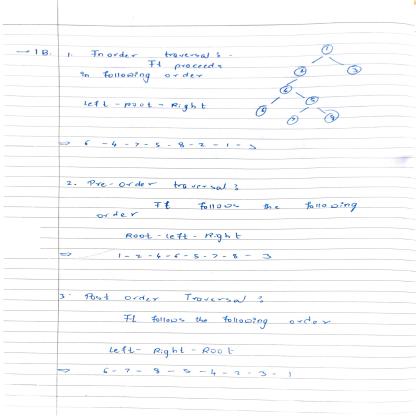 → 1B. 1. Inorder traversal :-
It proceeds
in following order
Left - root - Right
⇒ 6 - 4 - 7 - 5 - 8 - 2 - 1 - 3
1
3
5
8
2. Pre-order traversal :
It follows the following
order
Root - Left - Right
⇒ 1 - 2 - 4 - 6 - 5 - 7 - 8 - 3
3. Post order Traversal :
It follows the following order
Left - Right - Root
⇒ 6 - 7 - 8 - 5 - 4 - 2 - 3 - 1